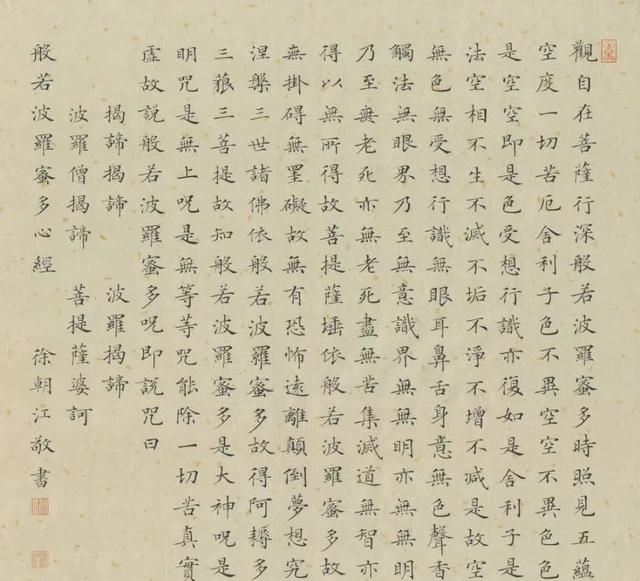 觀自在菩薩行深般若波羅蜜多時照見五蘊
空度一切苦厄舍利子色不異空空不異色色
是空空即是色受想行識亦復如是舍利子是
法空相不生不滅不垢不淨不增不減是故空
無色無受想行識無眼耳鼻舌身意無色聲香
觸法無眼界乃至無意識界無無明亦無無明
乃至無老死亦無老死盡無苦集滅道無智亦
得以無所得故菩提薩埵依般若波羅蜜多故
無掛碍無罣礙故無有恐怖遠離顛倒夢想究
涅槃三世諸佛依般若波羅蜜多故得阿耨多
三藐三菩提故知般若波羅蜜多是大神咒是
明咒是無上咒是無等等咒能除一切苦真實
虛故說般若波羅蜜多咒即說咒曰
揭諦揭諦 波羅揭諦
波羅僧揭諦 菩提薩婆訶
般若波羅蜜多心經 徐朝江敬書